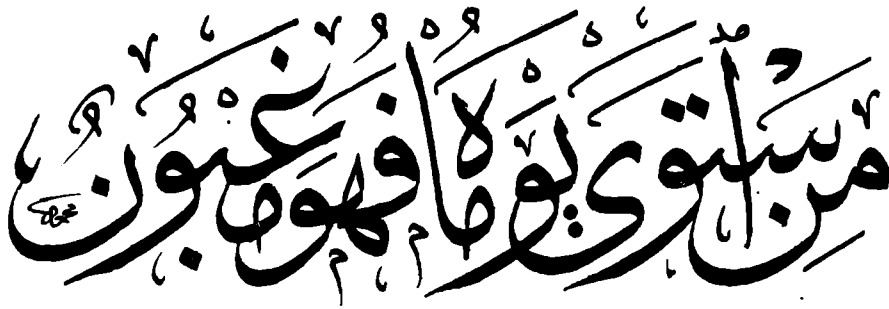 مَنِ ٱسْتَوَى يَوْمَاهُ فَهُوَ مَغْبُونٌ